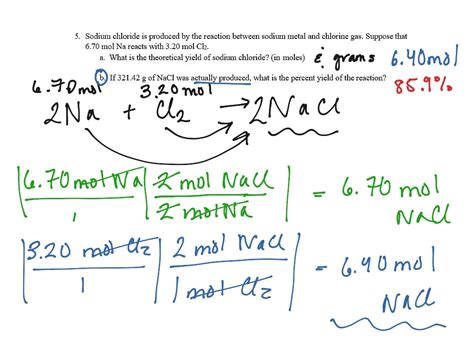 5. Sodium chloride is produced by the reaction between sodium metal and chlorine gas. Suppose that
6.70 mol Na reacts with 3.20 mol Cl₂.
a. What is the theoretical yield of sodium chloride? (in moles) & grams 6.40mol
b. If 321.42 g of NaCl was actually produced, what is the percent yield of the reaction? 85.9%
6.70mol 3.20 mol
2Na + Cl₂ → 2NaCl
6.70 mol Na | 2 mol NaCl = 6.70 mol
1 | 2 mol Na NaCl
3.20 mol Cl₂ | 2 mol NaCl = 6.40 mol
1 | 1 mol Cl₂ NaCl